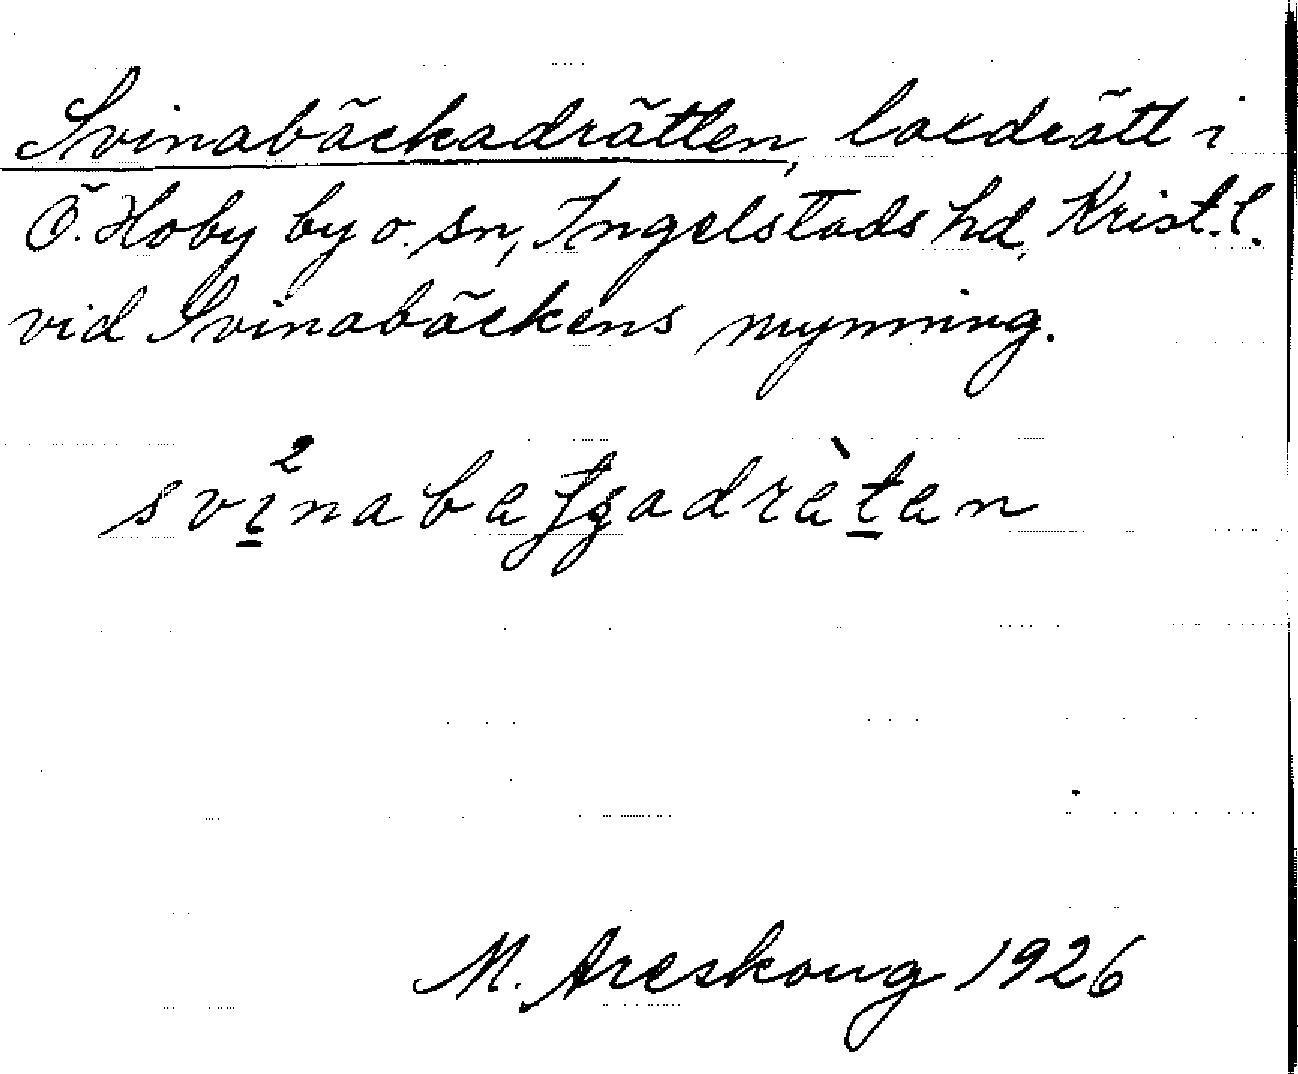 Svinabäckadrätten, laxdrätt i
Ö. Hoby by o. sn, Ingelstads hd, Krist. l.
vid Svinabäckens mynning.
M. Areskoug 1926